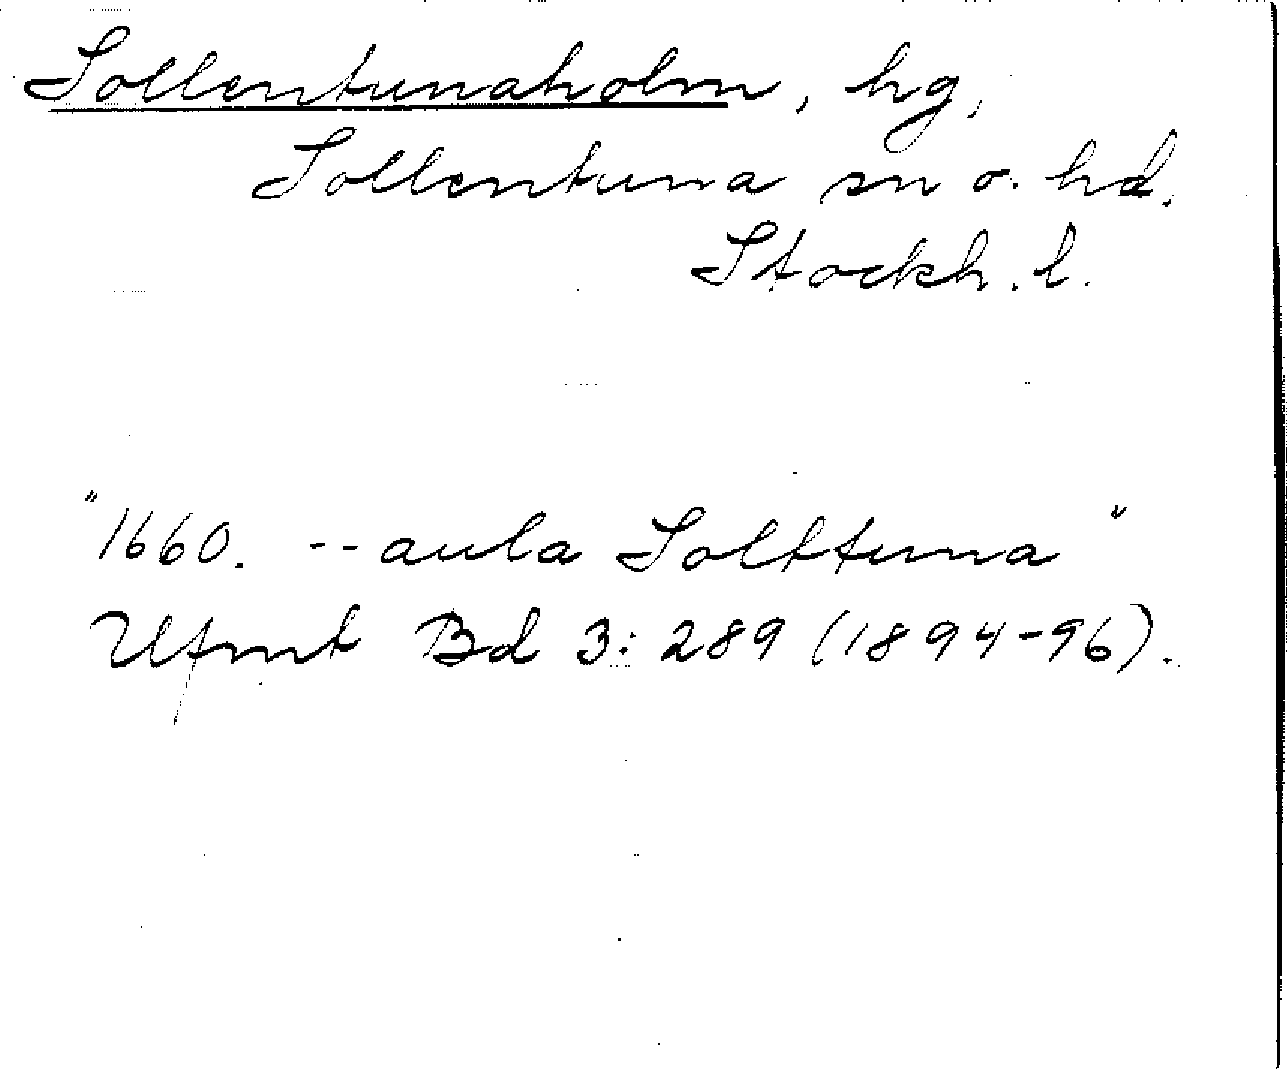 Sollentunaholm, hg,
Sollentuna sn o. hd.
Stockh. l.
"1660. -- aula Solttuna"
Ufmt Bd 3: 289 (1894-96).